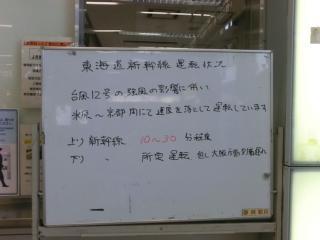 東海道新幹線 運転状況
台風12号の強風の影響に伴い
米原～京都間にて速度を落として運転しています
上り 新幹線 10～30 分程度
下り 〃 所定 運転 但し大阪市内